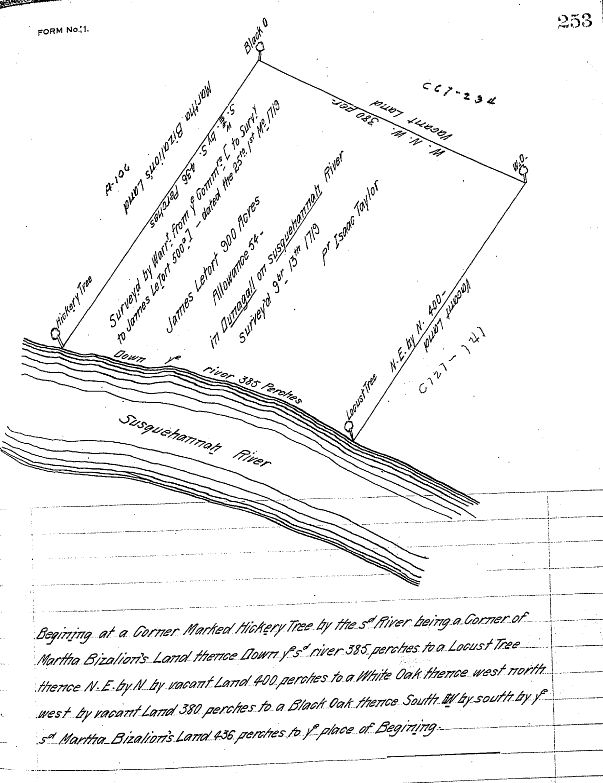 FORM No. 1.
253
Black O
CC7-234
Vacant Land
W. N. W. 380 per.
W.O.
A-106
Martha Bizalion's Land
S. W. by S. 436 Perches
Survey'd by Warrt. from ye Commrs. [ to Survy
to James LeTort 500a ] — dated the 25th 1st Mo 1719
James Letort 900 Acres
Allowance 54-
in Dunagall on Susquehannah River
Survey'd 9br 13th 1719
pr Isaac Taylor
Hickery Tree
Down ye river 385 Perches
Locust Tree
N.E. by N. 400-
Vacant Land
C127-141
Susquehannah River
Begining at a Corner Marked Hickery Tree by the sd River being a Corner of
Martha Bizalion's Land thence Down ye sd river 385 perches to a Locust Tree
thence N.E. by N. by vacant Land 400 perches to a White Oak thence west north
west by vacant Land 380 perches to a Black Oak thence South by south by ye
sd Martha Bizalion's Land 436 perches to ye place of Begining.